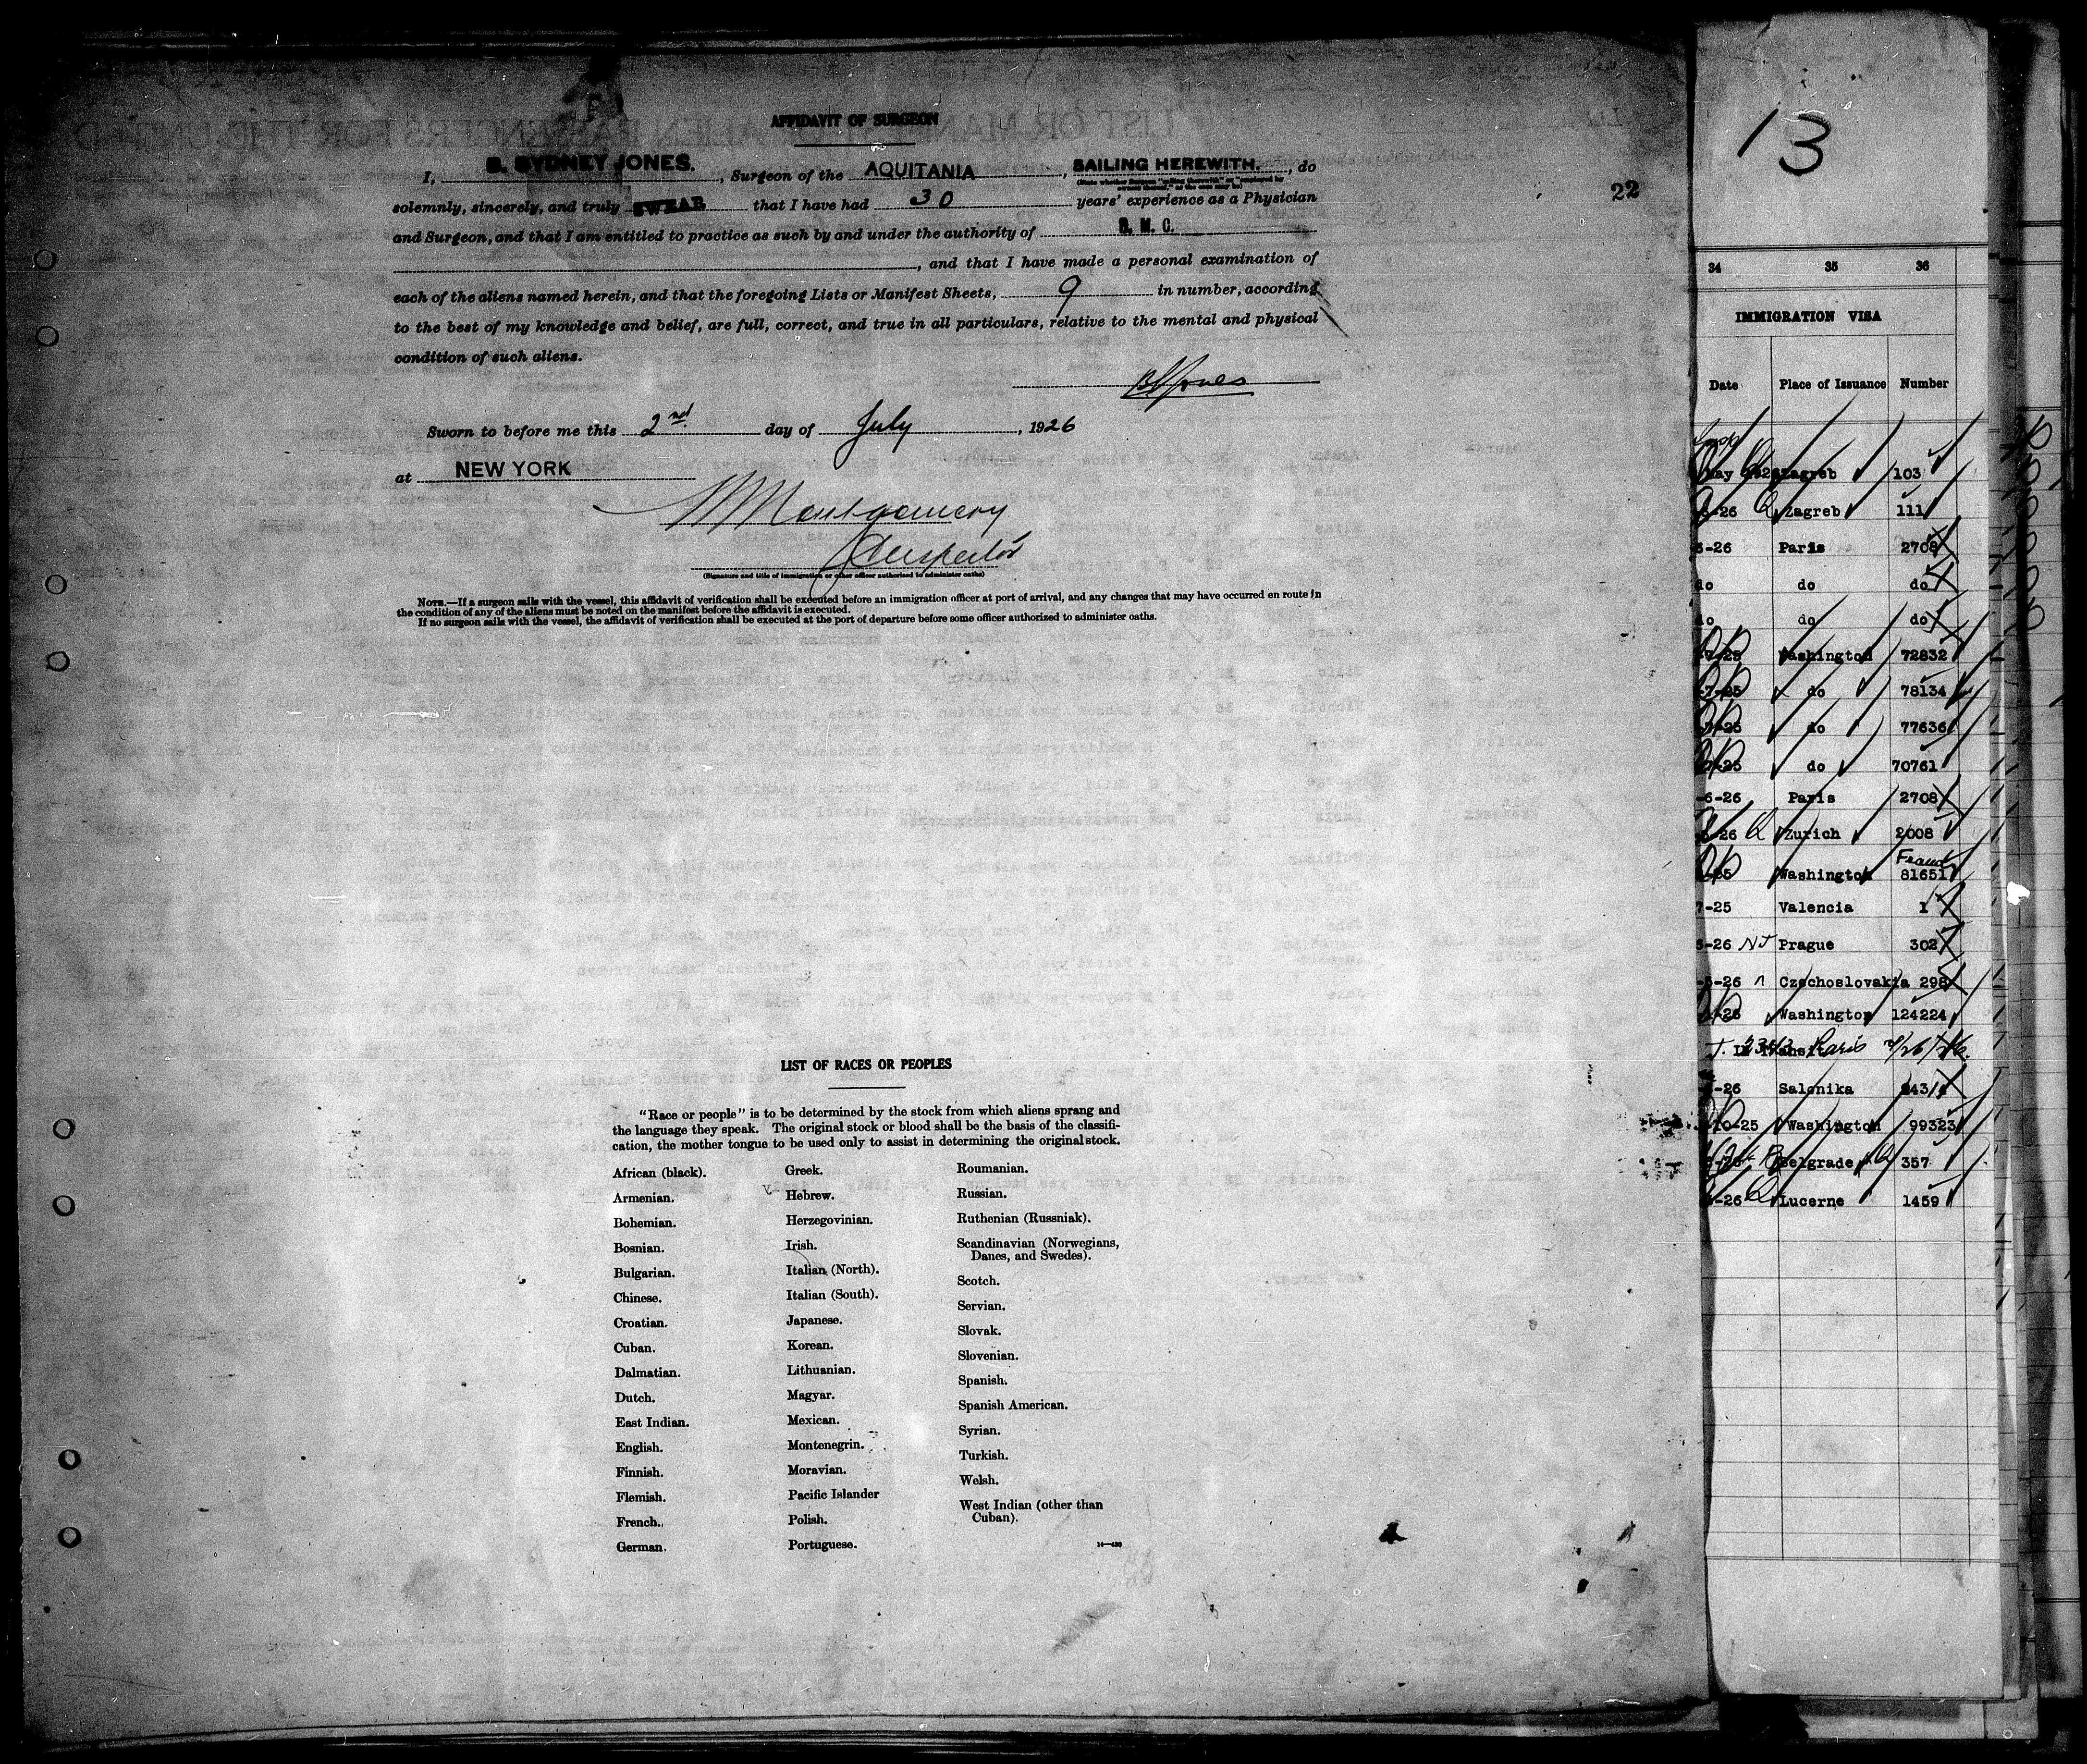 AFFIDAVIT OF SURGEON
I, B. SYDNEY JONES., Surgeon of the AQUITANIA, SAILING HEREWITH., do
solemnly, sincerely, and truly SWEAR that I have had 30 years' experience as a Physician
and Surgeon, and that I am entitled to practice as such by and under the authority of
, and that I have made a personal examination of
each of the aliens named herein, and that the foregoing Lists or Manifest Sheets, 9 in number, according
to the best of my knowledge and belief, are full, correct, and true in all particulars, relative to the mental and physical
condition of such aliens.
BSJones
Sworn to before me this 2nd day of July, 1926
at NEW YORK
Montgomery
Inspector
(Signature and title of immigration or other officer authorized to administer oaths)
NOTE.—If a surgeon sails with the vessel, this affidavit of verification shall be executed before an immigration officer at port of arrival, and any changes that may have occurred en route in
the condition of any of the aliens must be noted on the manifest before the affidavit is executed.
If no surgeon sails with the vessel, the affidavit of verification shall be executed at the port of departure before some officer authorized to administer oaths.
22
LIST OF RACES OR PEOPLES
"Race or people" is to be determined by the stock from which aliens sprang and
the language they speak. The original stock or blood shall be the basis of the classifi-
cation, the mother tongue to be used only to assist in determining the original stock.
African (black).
Armenian.
Bohemian.
Bosnian.
Bulgarian.
Chinese.
Croatian.
Cuban.
Dalmatian.
Dutch.
East Indian.
English.
Finnish.
Flemish.
French.
German.
Greek.
Hebrew.
Herzegovinian.
Irish.
Italian (North).
Italian (South).
Japanese.
Korean.
Lithuanian.
Magyar.
Mexican.
Montenegrin.
Moravian.
Pacific Islander
Polish.
Portuguese.
Roumanian.
Russian.
Ruthenian (Russniak).
Scandinavian (Norwegians,
Danes, and Swedes).
Scotch.
Servian.
Slovak.
Slovenian.
Spanish.
Spanish American.
Syrian.
Turkish.
Welsh.
West Indian (other than
Cuban).
13
34 35 36
IMMIGRATION VISA
Date Place of Issuance Number
Zagreb 103
-26 Zagreb 111
6-26 Paris 2708
do do do
do do do
7-25 Washington 72832
-7-25 do 78134
7-25 do 77636
-25 do 70761
-6-26 Paris 2708
-26 Zurich 2008
Fraud
Washington 81651
7-25 Valencia 1
6-26 NT Prague 302
-6-26 Czechoslovakia 298
-26 Washington 124224
In Transit Paris
-26 Salonika
10-25 Washington 99323
Belgrade 357
-26 Lucerne 1459